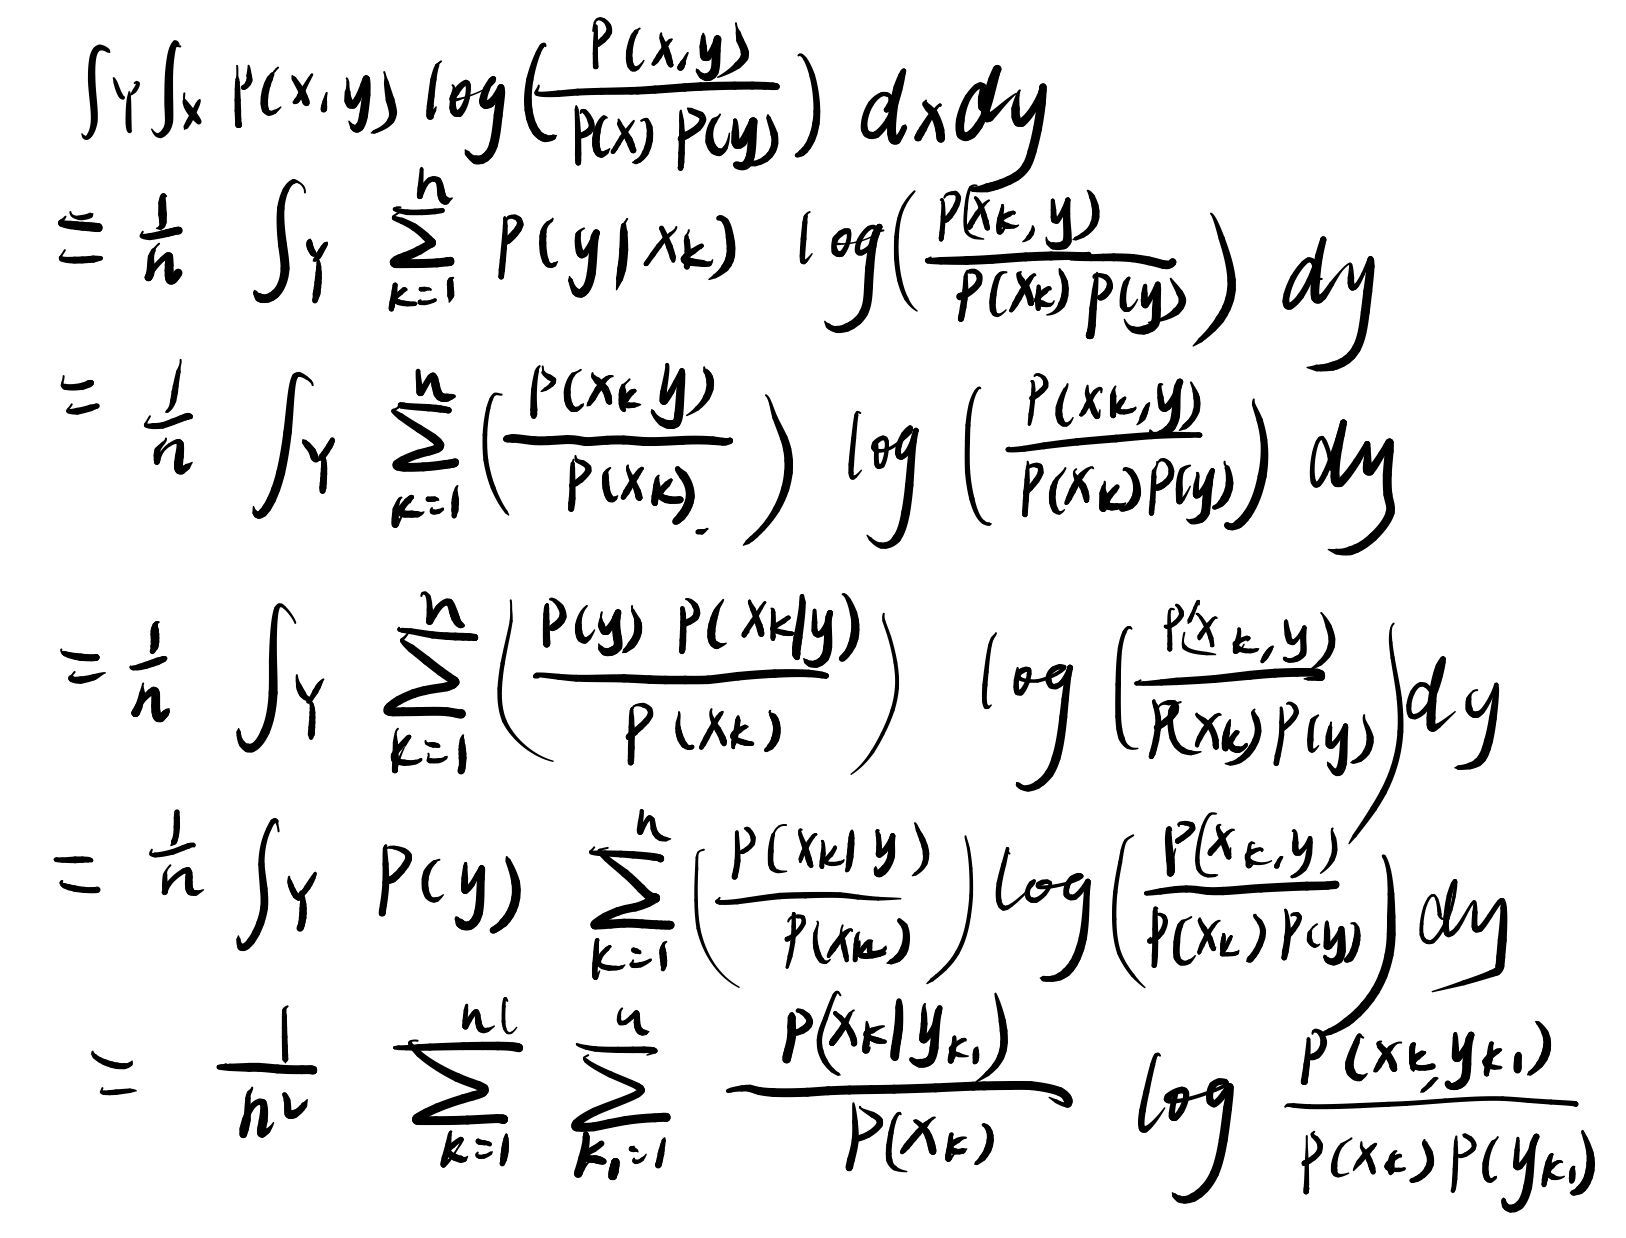 ∫_Y ∫_X P(x,y) log( P(x,y) / P(x) P(y) ) dxdy
= 1/n ∫_Y ∑_{k=1}^{n} P(y|x_k) log( P(x_k,y) / P(x_k) P(y) ) dy
= 1/n ∫_Y ∑_{k=1}^{n} ( P(x_k y) / P(x_k) ) log( P(x_k,y) / P(x_k)P(y) ) dy
= 1/n ∫_Y ∑_{k=1}^{n} ( P(y) P(x_k|y) / P(x_k) ) log( P(x_k,y) / P(x_k)P(y) ) dy
= 1/n ∫_Y P(y) ∑_{k=1}^{n} ( P(x_k|y) / P(x_k) ) log( P(x_k,y) / P(x_k) P(y) ) dy
= 1/n² ∑_{k=1}^{n} ∑_{k_1=1}^{n} P(x_k|y_{k_1}) / P(x_k) log P(x_k,y_{k_1}) / P(x_k) P(y_{k_1})